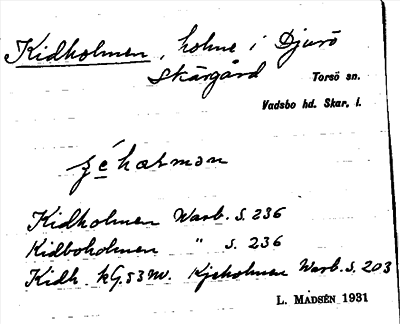 Kidholmen, holme i Djurö
Skärgård Torsö sn.
Vadsbo hd. Skar. l.
Kidholmen Warb. S. 236
Kidboholmen " S. 236
Kidh. kG. 53 NV. Kjeholmen Warb. S. 203
L. MADSÉN 1931